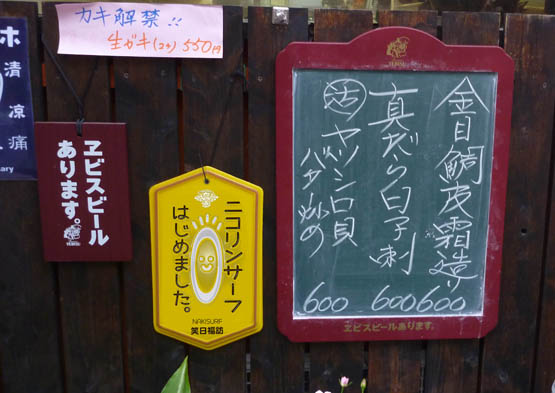 カキ解禁!!
生ガキ(2ケ) 550円
ホ
清
涼
痛
tary
ヱビスビール
あります。
ニコリンサーフ
はじめました。
NAKISURF
笑日福訪
金目鯛皮霜造り
600
真だら白子刺
600
活 ヤツシロ貝
バター炒め
600
ヱビスビールあります。